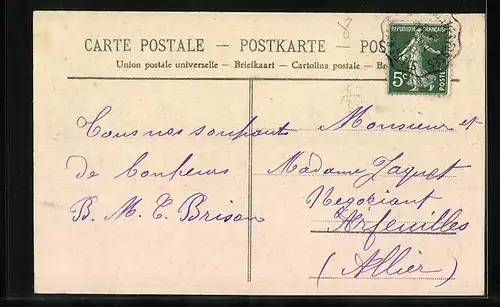 CARTE POSTALE — POSTKARTE — POS
Union postale universelle — Briefkaart — Cartolina postale — Br
REPUBLIQUE FRANÇAISE
5c
POSTES
Tous nos souhaits
de bonheur
B. M. C. Brison
Monsieur et
Madame Jaquet
Negociant
Arfeuilles
(Allier)